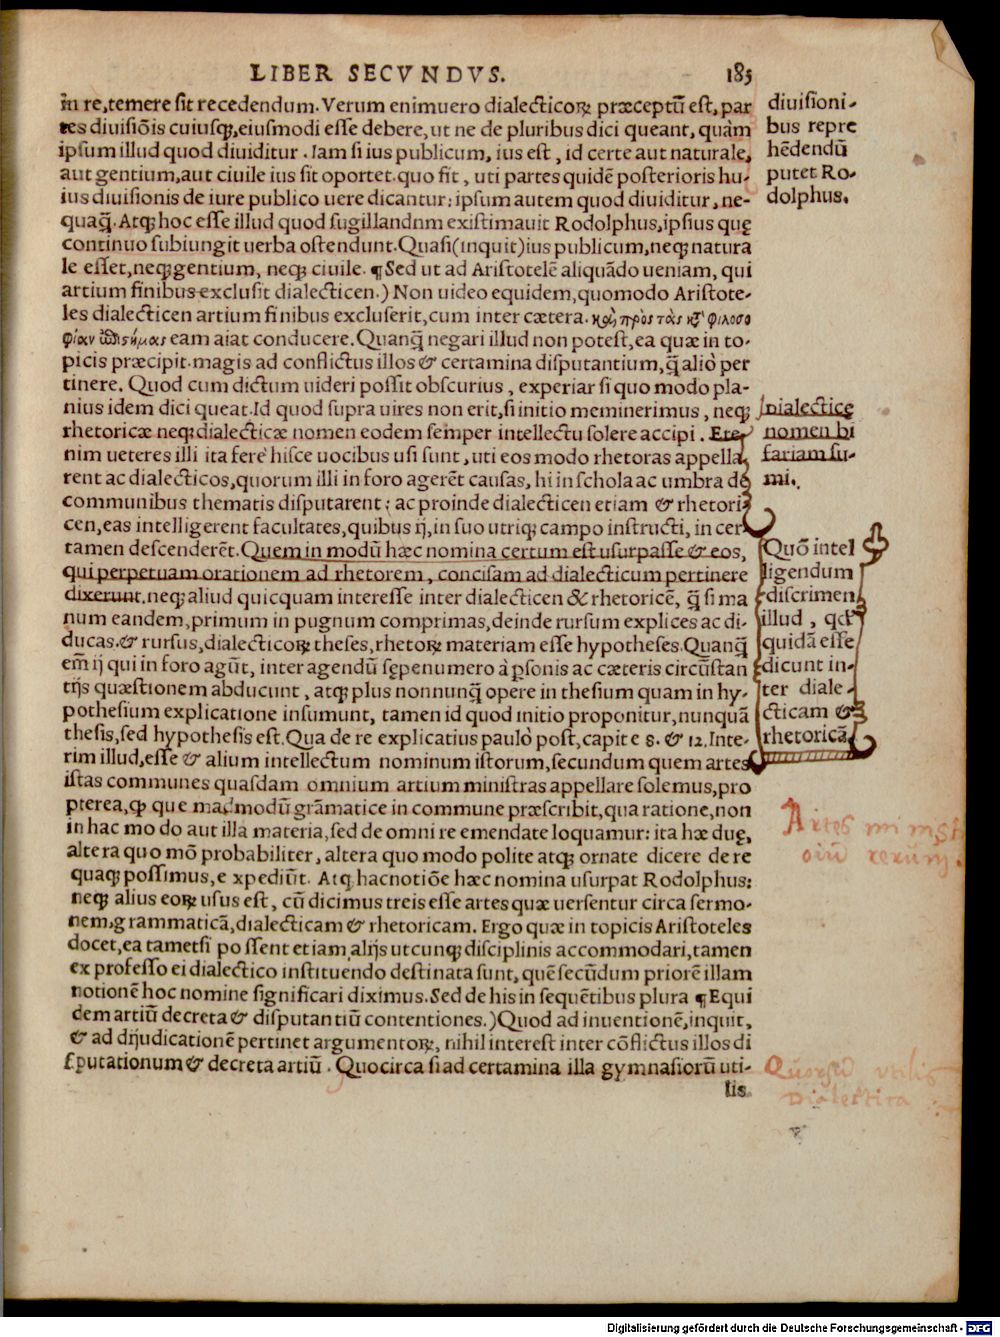 LIBER SECVNDVS. 185
in re, temere sit recedendum. Verum enimuero dialecticoꝝ præceptũ est, par
tes diuisiõis cuiusqꝫ, eiusmodi esse debere, ut ne de pluribus dici queant, quàm
ipsum illud quod diuiditur. Iam si ius publicum, ius est, id certe aut naturale,
aut gentium, aut ciuile ius sit oportet. quo fit, uti partes quidẽ posterioris hu-
ius diuisionis de iure publico uere dicantur: ipsum autem quod diuiditur, ne-
quaq̃. Atqꝫ hoc esse illud quod sugillandnm existimauit Rodolphus, ipsius quę
continuo subiungit uerba ostendunt. Quasi (inquit) ius publicum, neqꝫ natura
le esset, neqꝫ gentium, neqꝫ ciuile. ¶ Sed ut ad Aristotelẽ aliquãdo ueniam, qui
artium finibus exclusit dialecticen.) Non uideo equidem, quomodo Aristote-
les dialecticen artium finibus excluserit, cum inter cætera. καὶ πρὸς τὰς κτ̃ φιλοσο
φίαν ἐπιστήμας eam aiat conducere. Quanq̃ negari illud non potest, ea quæ in to-
picis præcipit. magis ad conflictus illos & certamina disputantium, q̃ aliò per
tinere. Quod cum dictum uideri possit obscurius, experiar si quo modo pla-
nius idem dici queat. Id quod supra uires non erit, si initio meminerimus, neqꝫ
rhetoricæ neqꝫ dialecticæ nomen eodem semper intellectu solere accipi. Ete-
nim ueteres illi ita ferè hisce uocibus usi sunt, uti eos modo rhetoras appella
rent ac dialecticos, quorum illi in foro agerẽt causas, hi in schola ac umbra de
communibus thematis disputarent: ac proinde dialecticen etiam & rhetori
cen, eas intelligerent facultates, quibus ij, in suo utriqꝫ campo instructi, in cer
tamen descenderẽt. Quem in modũ hæc nomina certum est usurpasse & eos,
qui perpetuam orationem ad rhetorem, concisam ad dialecticum pertinere
dixerunt. neqꝫ aliud quicquam interesse inter dialecticen & rhetoricẽ, q̃ si ma
num eandem, primum in pugnum comprimas, deinde rursum explices ac di-
ducas. & rursus, dialecticoꝝ theses, rhetoꝝ materiam esse hypotheses. Quanq̃
em̃ ij qui in foro agũt, inter agendũ sępenumero à ꝑsonis ac cæteris circũstan
tijs quæstionem abducunt, atqꝫ plus nonnunq̃ opere in thesium quam in hy-
pothesium explicatione insumunt, tamen id quod initio proponitur, nunquã
thesis, sed hypothesis est. Qua de re explicatius paulò post, capite 8. & 12. Inte-
rim illud, esse & alium intellectum nominum istorum, secundum quem artes
istas communes quasdam omnium artium ministras appellare solemus, pro
pterea, ꝙ que madmodũ grãmatice in commune præscribit, qua ratione, non
in hac mo do aut illa materia, sed de omni re emendate loquamur: ita hæ duę,
altera quo mõ probabiliter, altera quo modo polite atqꝫ ornate dicere de re
quaqꝫ possimus, e xpediũt. Atq hac notiõe hæc nomina usurpat Rodolphus:
neqꝫ alius eoꝝ usus est, cũ dicimus treis esse artes quæ uersentur circa sermo-
nem, grammaticã, dialecticam & rhetoricam. Ergo quæ in topicis Aristoteles
docet, ea tametsi po ssent etiam alijs utcunqꝫ disciplinis accommodari, tamen
ex professo ei dialectico instituendo destinata sunt, quẽ secũdum priorẽ illam
notionẽ hoc nomine significari diximus. Sed de his in sequẽtibus plura ¶ Equi
dem artiũ decreta & disputantiũ contentiones.) Quod ad inuentionẽ, inquit,
& ad dijudicationẽ pertinet argumentoꝝ, nihil interest inter cõflictus illos di
sputationum & decreta artiũ. Quocirca si ad certamina illa gymnasiorũ uti-
lis
diuisioni-
bus repre
hẽdendũ
putet Ro-
dolphus.
Dialecticę
nomen bi
fariam su-
mi.
Quõ intel
ligendum
discrimen
illud, qđ
quidã esse
dicunt in-
ter diale-
cticam &
rhetoricã.
Artes
rerum.
Quorsũ utilis
Dialectica
Digitalisierung gefördert durch die Deutsche Forschungsgemeinschaft - DFG